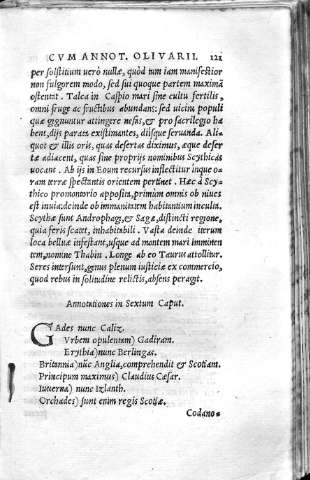 CVM ANNOT. OLIVARII. 121
per solstitium uerò nullæ, quòd tum iam manifestior
non fulgorem modo, sed sui quoque partem maximā
ostentat. Talea in Caspio mari sine cultu fertilis,
omni fruge ac fructibus abundans: sed uicini populi
quæ gignuntur attingere nefas, & pro sacrilegio ha
bent, dijs parata existimantes, diisque seruanda. Ali-
quot & illis oris, quas desertas diximus, æque deser
tæ adiacent, quas sine proprijs nominibus Scythicas
uocant. Ab ijs in Eoum recursus inflectitur inque o-
ram terræ spectantis orientem pertinet. Hæc à Scy-
thico promontorio apposita, primùm omnis ob niues
est inuia: deinde ob immanitatem habitantium inculta.
Scythæ sunt Androphagi, & Sagæ, distincti regione,
quia feris scatet, inhabitabili. Vasta deinde iterum
loca belluæ infestant, usque ad montem mari imminen
tem, nomine Thabin. Longe ab eo Taurus attollitur.
Seres intersunt, genus plenum iusticiæ ex commercio,
quod rebus in solitudine relictis, absens peragit.
Annotationes in Sextum Caput.
GAdes nunc Caliz.
Vrbem opulentam) Gadiram.
Erythia) nunc Berlingas.
Britannia) nūc Anglia, comprehendit & Scotiam.
Principum maximus) Claudius Cæsar.
Iuuerna) nunc Izlanth.
Orchades) sunt enim regis Scotiæ.
Codano⸗